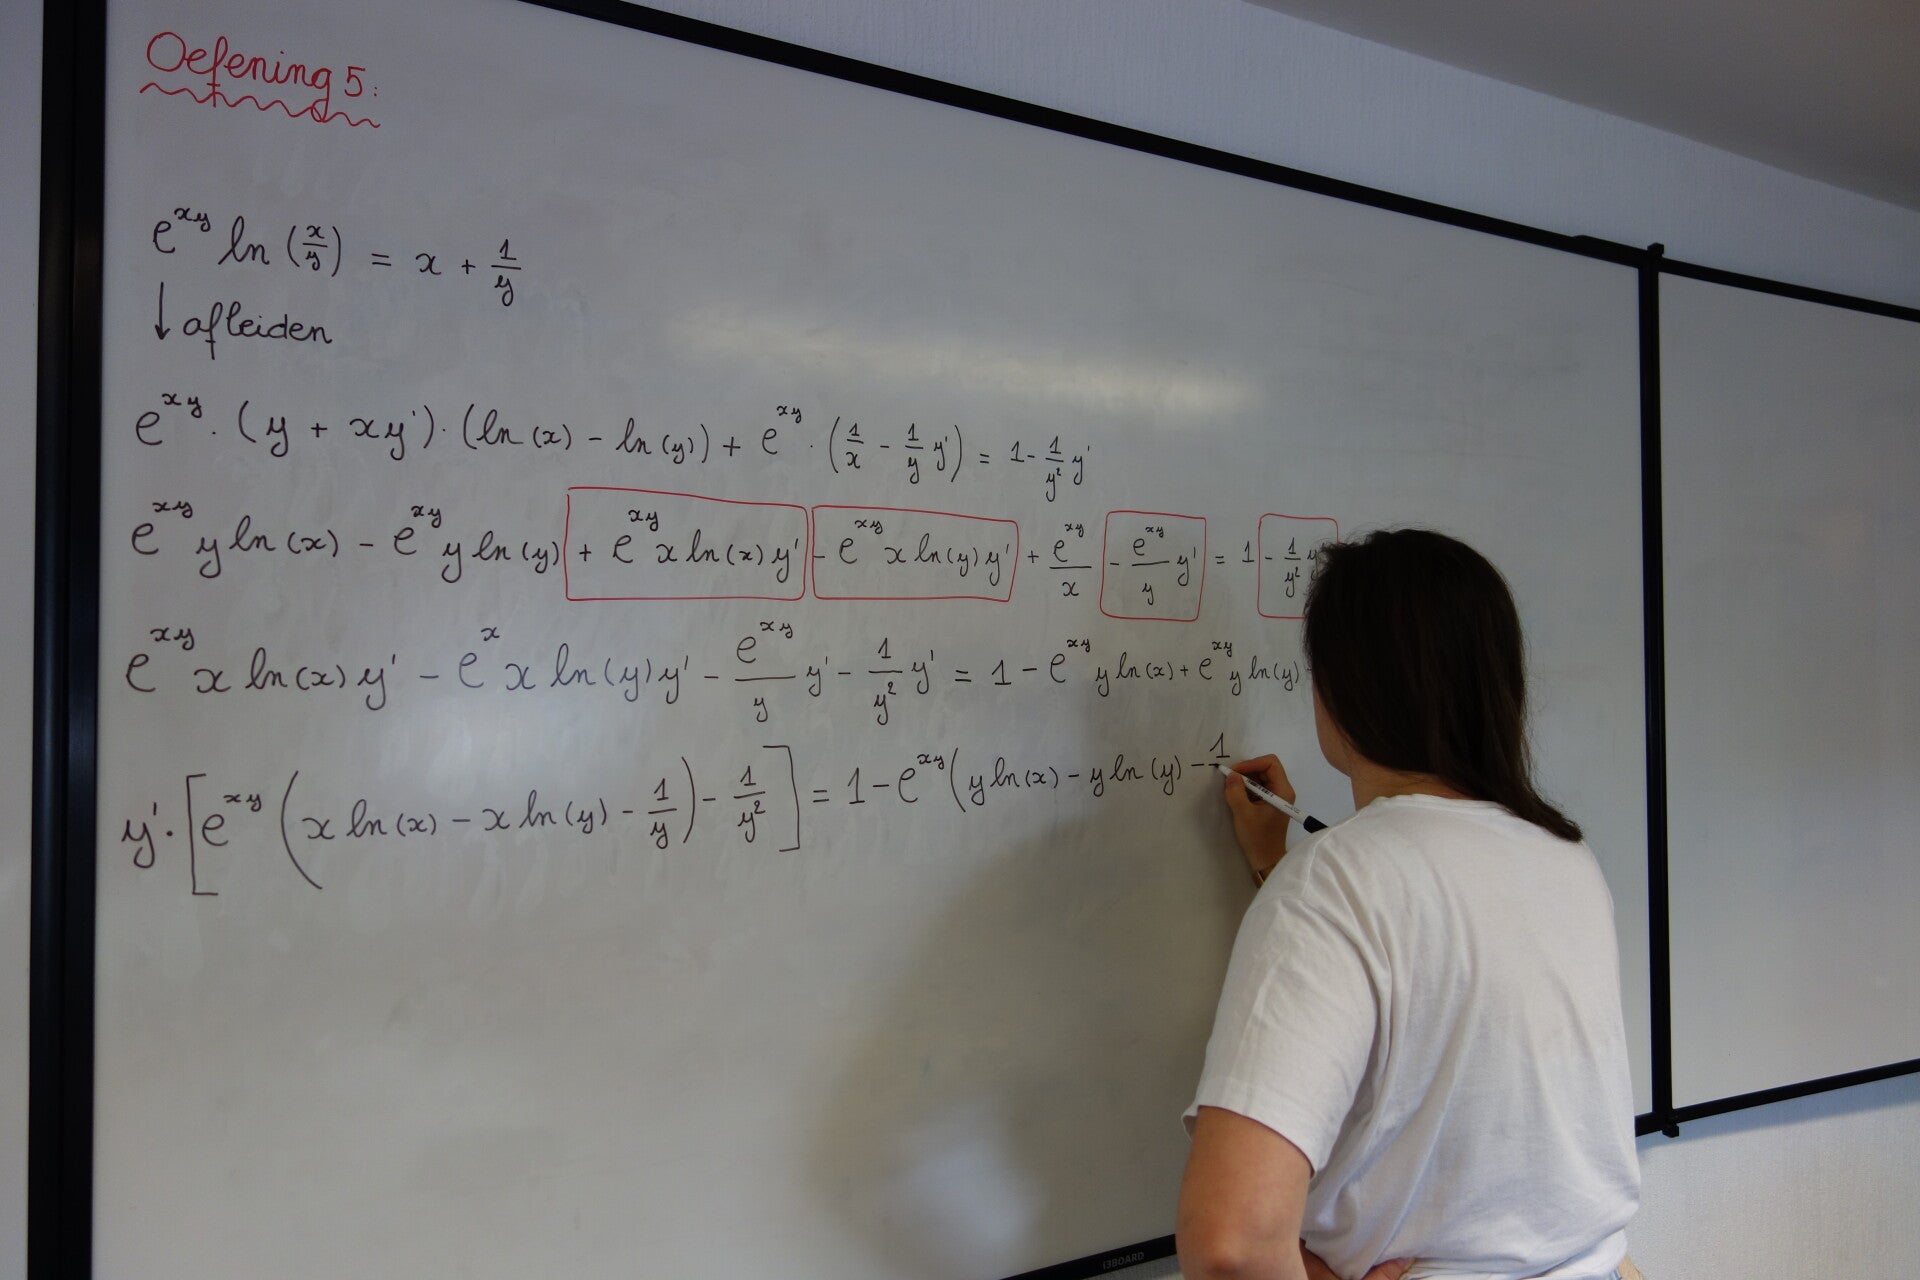 Oefening 5:
e^{xy} ln (x/y) = x + 1/y
↓ afleiden
e^{xy} · (y + xy') · (ln (x) - ln (y)) + e^{xy} · (1/x - 1/y y') = 1 - 1/y² y'
e^{xy} y ln (x) - e^{xy} y ln (y) + e^{xy} x ln (x) y' - e^{xy} x ln (y) y' + e^{xy}/x - e^{xy}/y y' = 1 - 1/y² y
e^{xy} x ln (x) y' - e^x x ln (y) y' - e^{xy}/y y' - 1/y² y' = 1 - e^{xy} y ln (x) + e^{xy} y ln (y)
y' · [e^{xy} (x ln (x) - x ln (y) - 1/y) - 1/y²] = 1 - e^{xy} (y ln (x) - y ln (y) - 1
i3BOARD